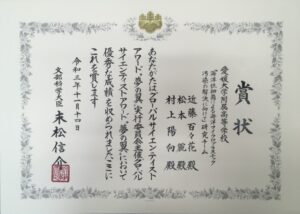 賞状
愛媛大学附属高等学校
「海洋性細菌によるマイクロプラスチック
汚染の解決に向けて」研究チーム
近藤 百々花 殿
松本 麗 殿
村上 陽向 殿
あなたがたはグローバルサイエンティスト
アワード“夢の翼”実行委員会主催グローバル
サイエンティストアワード“夢の翼”において
優秀な成績を収められました ここに
これを賞します
令和三年十一月十四日
文部科学大臣 末松信介